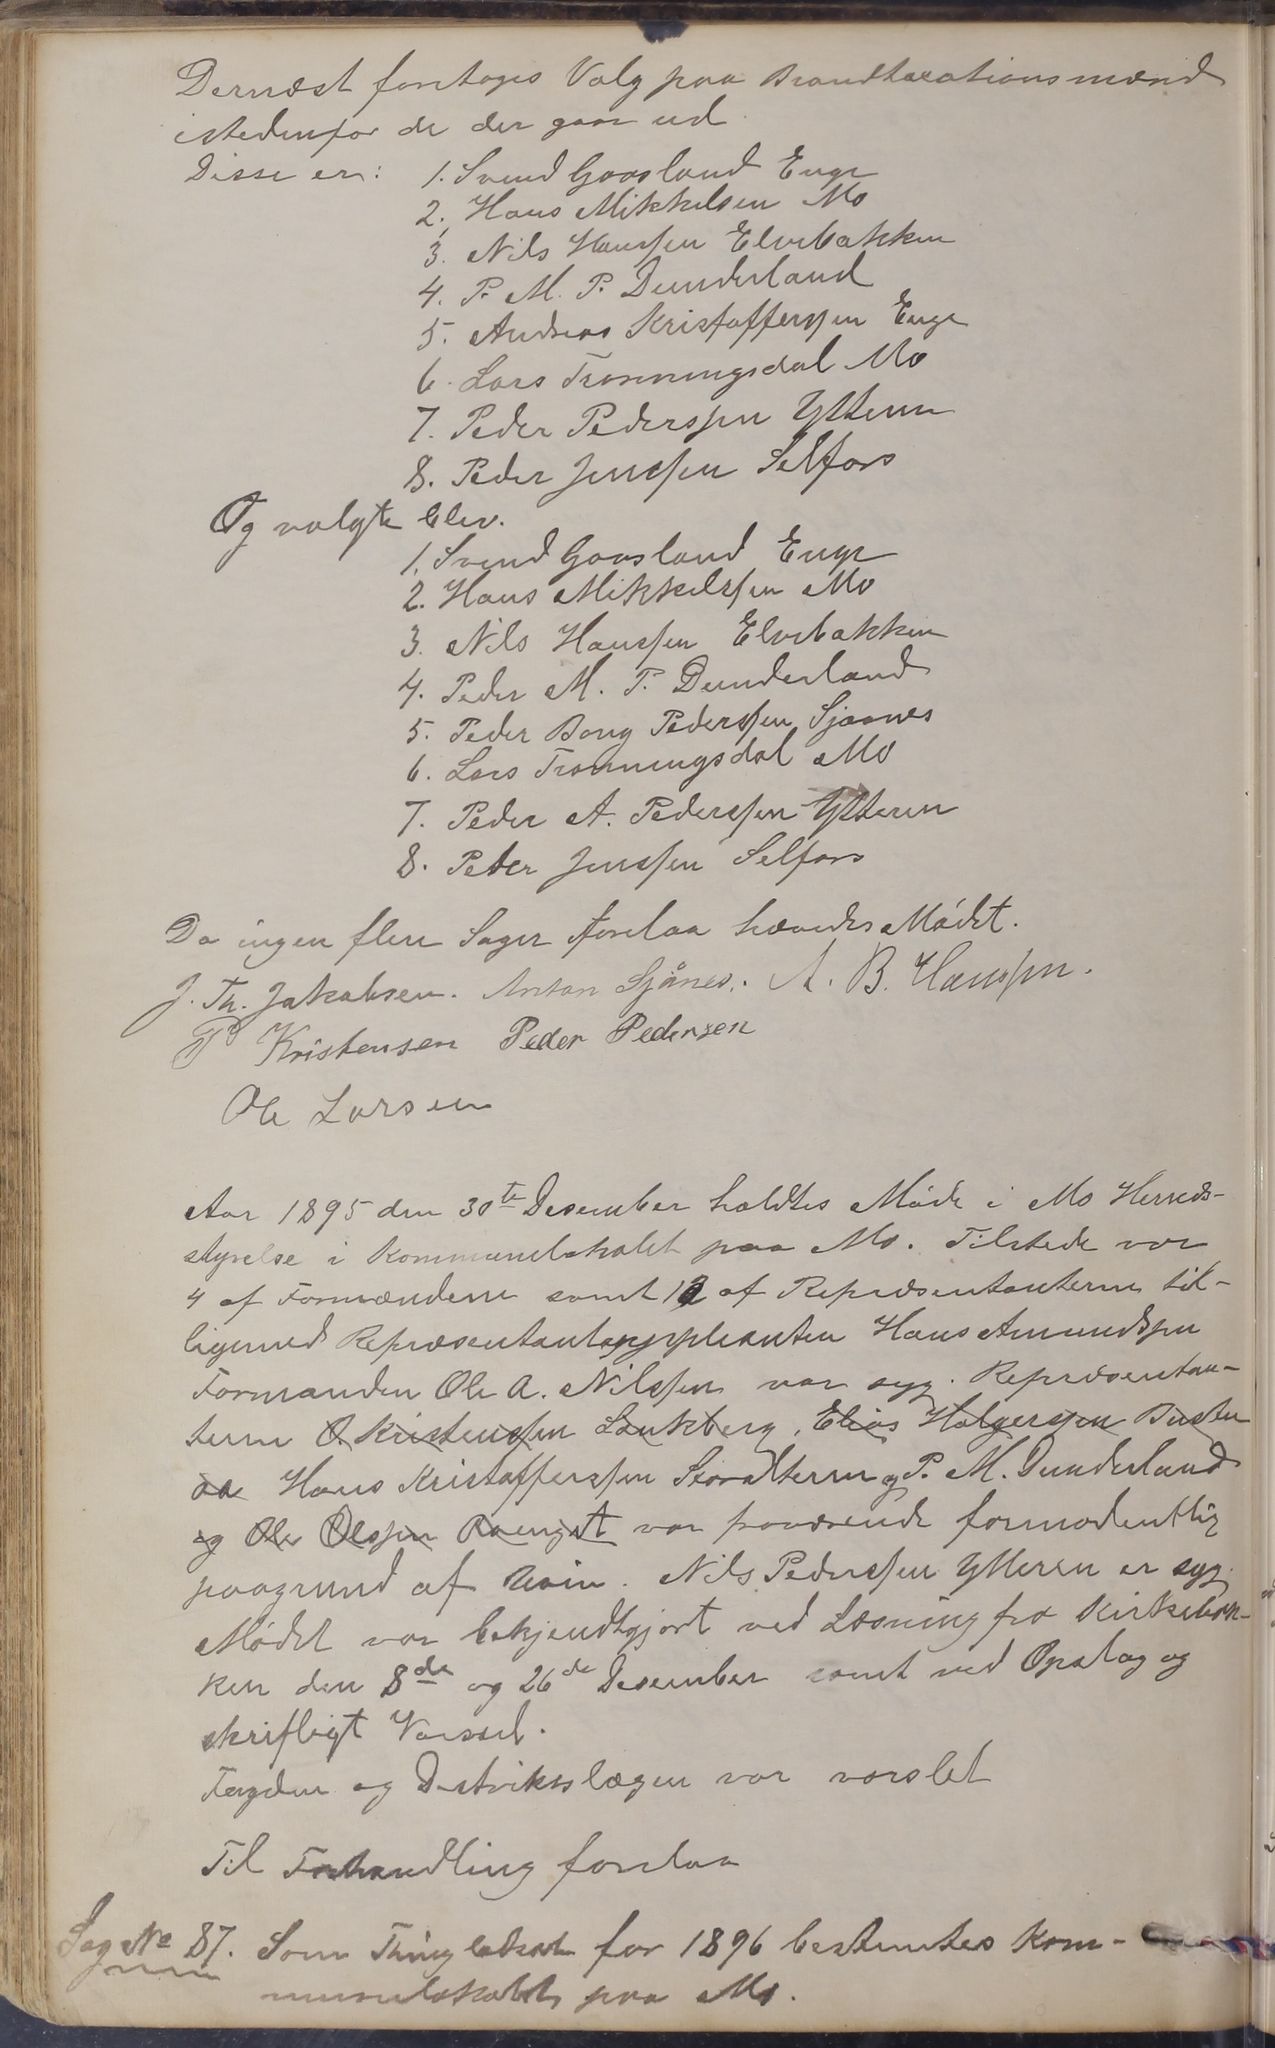 Dernæst foretoges Valg paa Brandtaxationsmænd
istedenfor de der gaar ud.
Disse er: 1. Svend Gaasland Enge
2. Hans Mikkelsen Mo
3. Nils Hanssen Elvebakken
4. P. M. P. Dunderland
5. Andreas Kristofferssen Enge
6. Lars Tronningsdal Mo
7. Peder Pederssen Ytteren
8. Peder Jenssen Selfors
Og valgte blev.
1. Svend Gaasland Enge
2. Hans Mikkelssen Mo
3. Nils Hanssen Elvebakken
4. Peder M. P. Dunderland
5. Peder Bong Pederssen Sjaanes
6. Lars Tronningsdal Mo
7. Peder A. Pederssen Ytteren
8. Peder Jenssen Selfors
Da ingen flere Sager forelaa hævedes Mødet.
J. Th. Jakobsen. Anton Sjånes. A. B. Hanssen.
P Kristensen Peder Pedersen
Ole Larsen
Aar 1895 den 30te Desember holdtes Møde i Mo Herreds-
styrelse i Kommunelokalet paa Mo. Tilstede var
4 af Formændene samt 12 af Repræsentanterne til-
ligemed Repræsentantsuppleanten Hans Amundssen
Formanden Ole A. Nilssen var syg. Repræsentan-
terne O Kristenssen Langberg, Elias Holgerssen Busten
Hans Kristofferssen Storalteren og P. M. Dunderland
og Ole Olssen var fraværende formodentlig
paagrund af Uveir. Nils Pederssen Ytteren er syg.
Mødet var bekjendtgjort ved Læsning fra Kirkebak-
ken den 8de og 26de Desember samt ved Opslag og
skriftligt Varssel.
Fogden og Distriktslægen var varslet
Til Forhandling forelaa
Sag No 87. Som Thinglokale for 1896 bestemtes Kom-
munelokalet paa Mo.